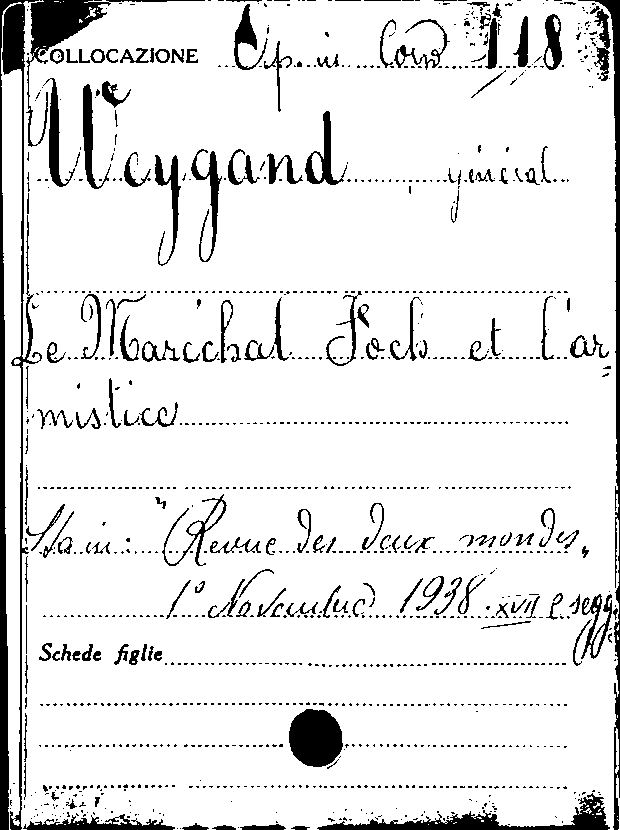 COLLOCAZIONE Op. in Cons 118
Weygand, général
Le Maréchal Foch et l'ar=
mistice
Sta in: "Revue des deux mondes„
1° Novembre 1938. XVII e segg.
Schede figlie